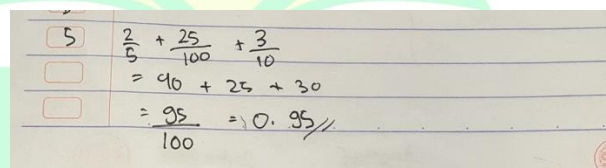 5 2/5 + 25/100 + 3/10
= 40 + 25 + 30
= 95/100 = 0.95//